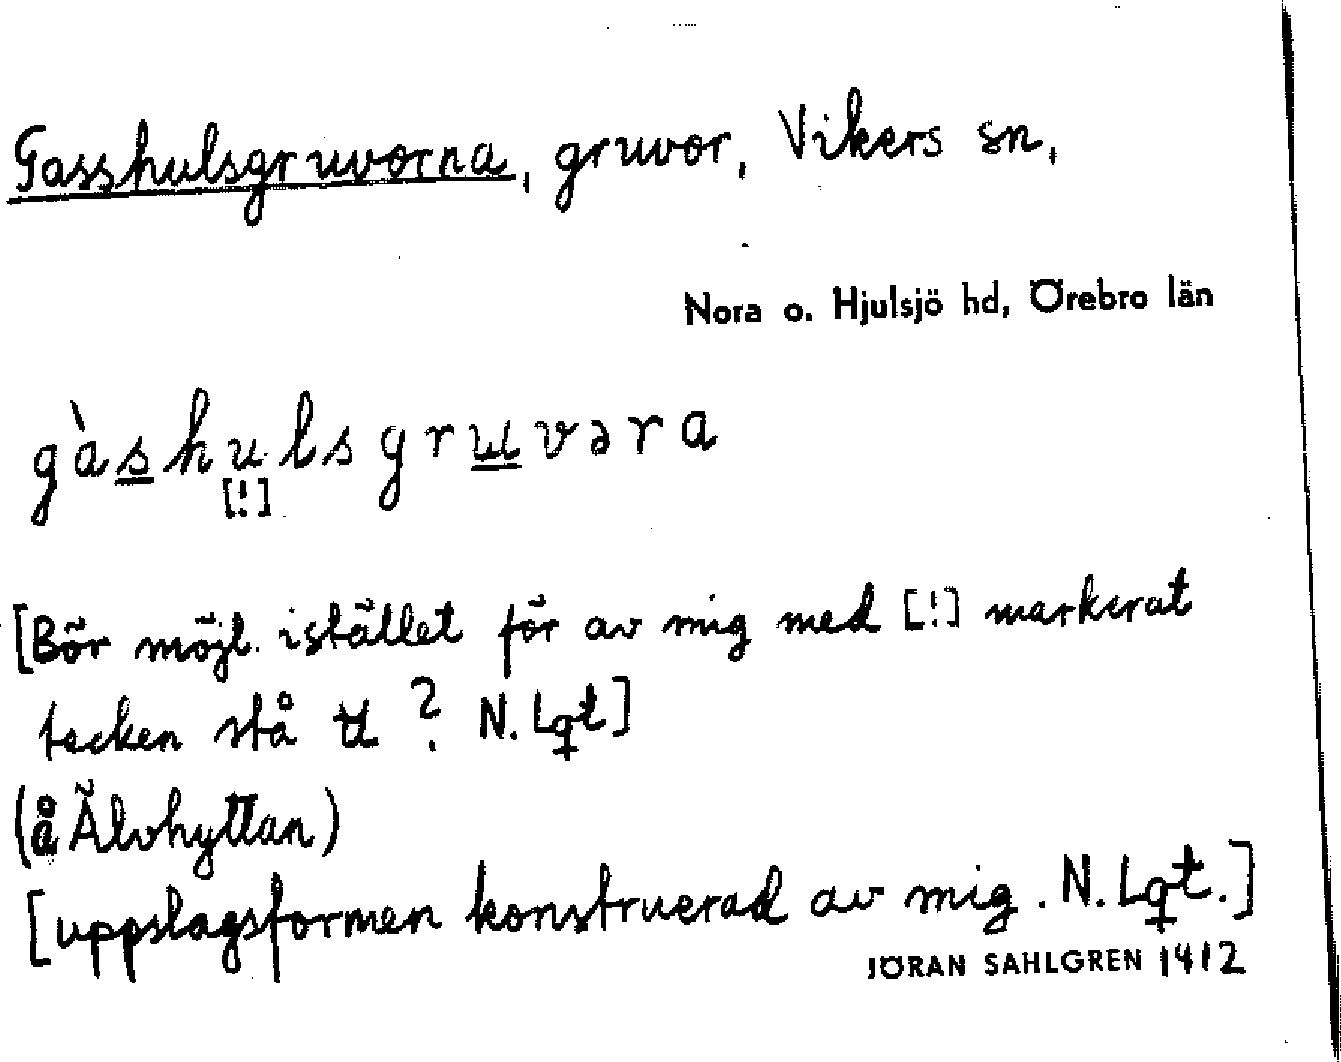 Gasshulsgruvorna, gruvor, Vikers sn,
Nora o. Hjulsjö hd, Örebro län
gàs̲hulsgru̲vəra
[!]
[Bör möjl. istället för av mig med [!] markerat
tecken stå ? N. Lqt]
(å Älvhyttan)
[uppslagsformen konstruerad av mig. N. Lqt.]
JÖRAN SAHLGREN 1412